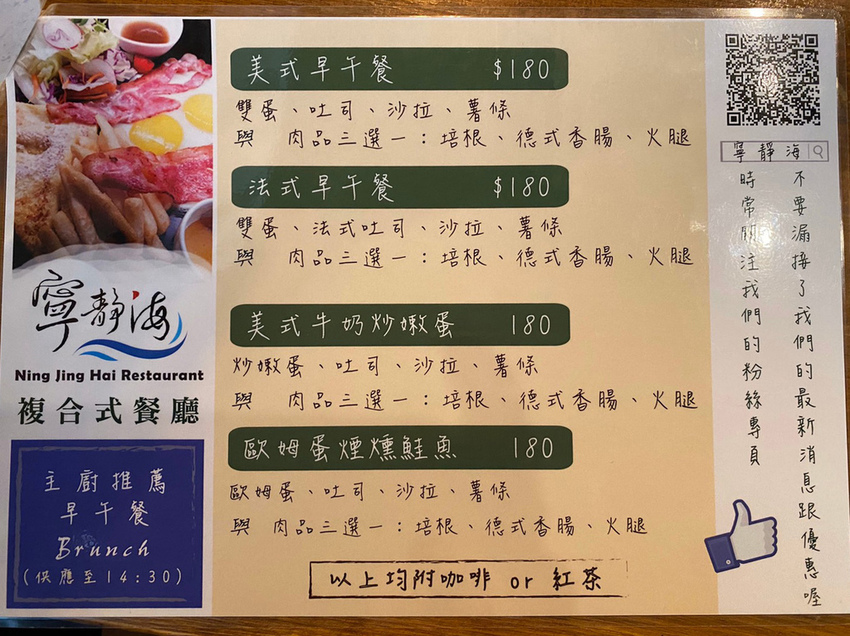 寧靜海
Ning Jing Hai Restaurant
複合式餐廳
主廚推薦
早午餐
Brunch
(供應至14:30)
美式早午餐 $180
雙蛋、吐司、沙拉、薯條
與 肉品三選一：培根、德式香腸、火腿
法式早午餐 $180
雙蛋、法式吐司、沙拉、薯條
與 肉品三選一：培根、德式香腸、火腿
美式牛奶炒嫩蛋 180
炒嫩蛋、吐司、沙拉、薯條
與 肉品三選一：培根、德式香腸、火腿
歐姆蛋煙燻鮭魚 180
歐姆蛋、吐司、沙拉、薯條
與 肉品三選一：培根、德式香腸、火腿
以上均附咖啡 or 紅茶
寧靜海
不要漏接了我們的最新消息跟優惠喔
時常關注我們的粉絲專頁